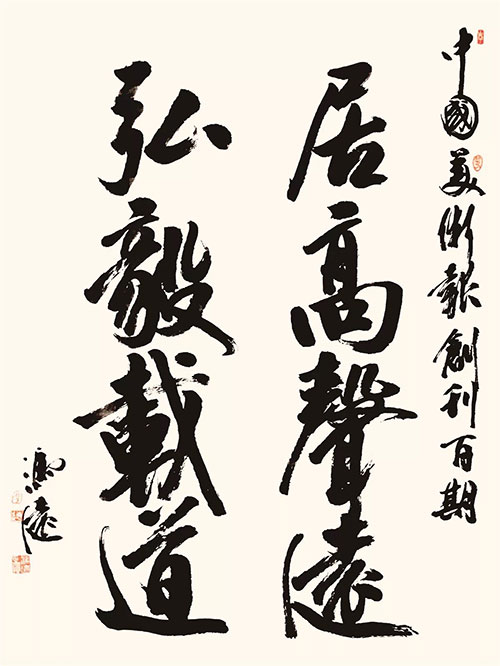 中國美術報創刊百期
居高聲遠
弘毅載道
馮遠